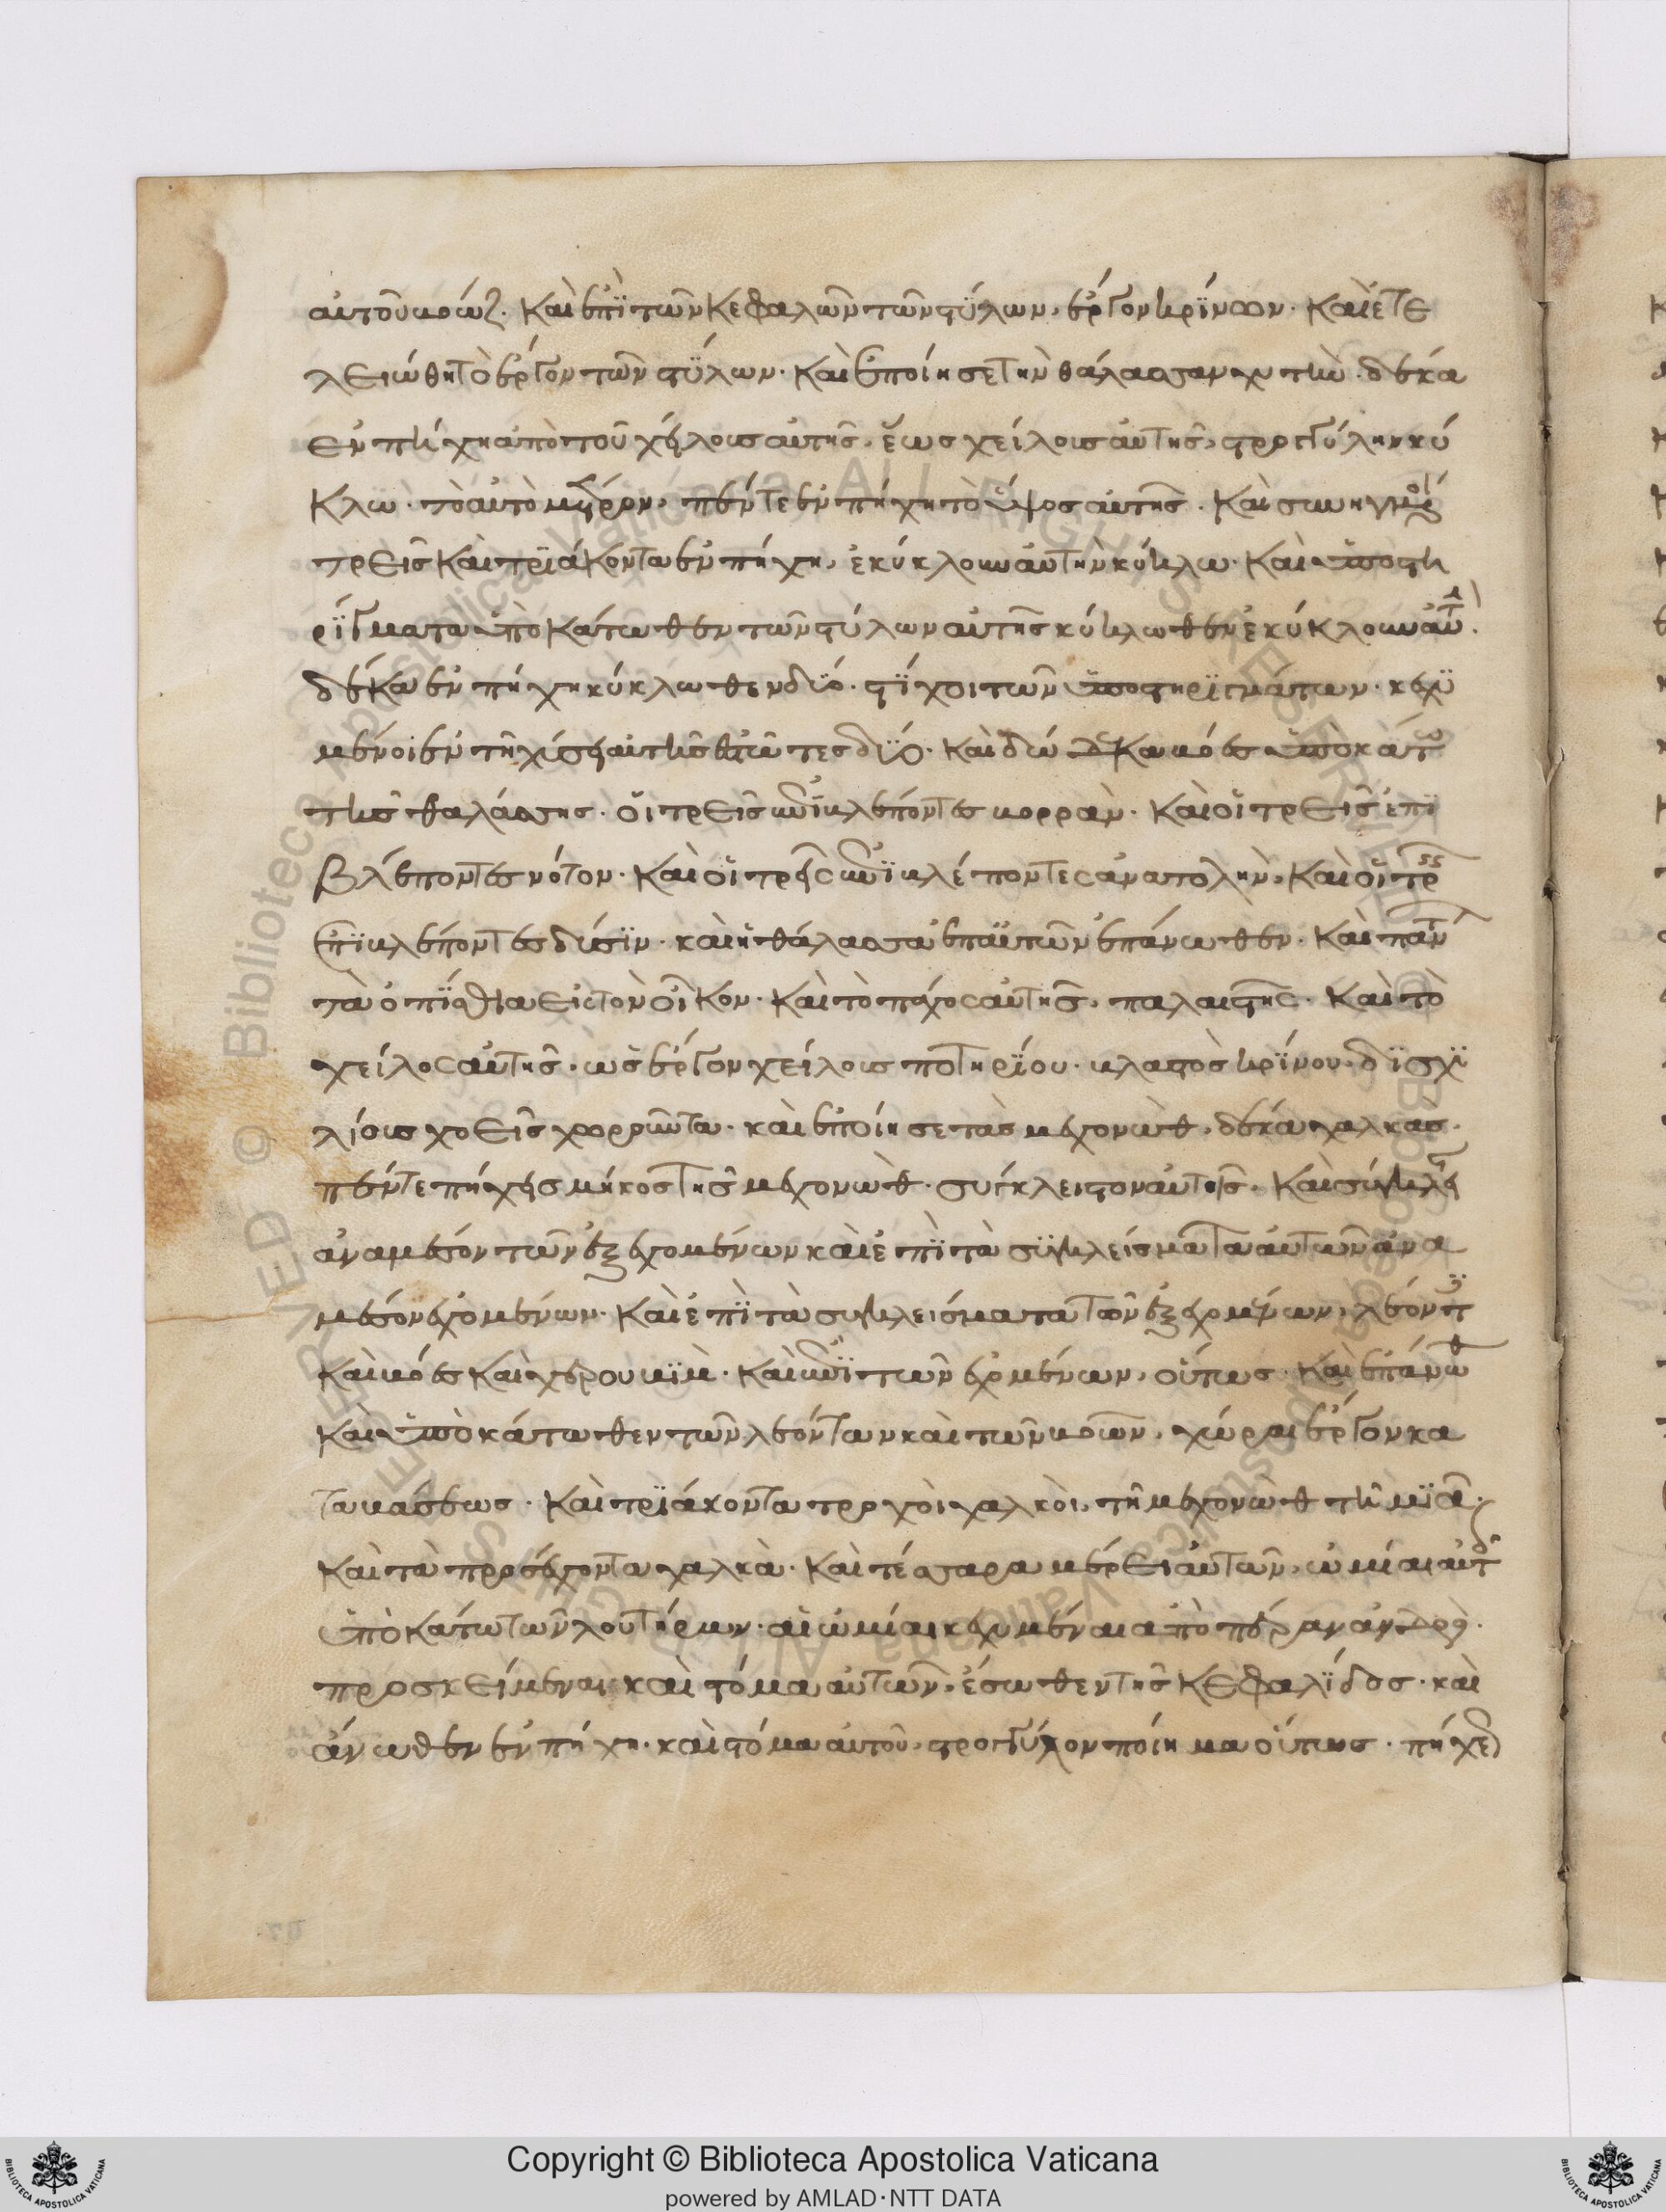 αὐτοῦ βοώζ. καὶ ἐπὶ τῶν κεφαλῶν τῶν στύλων, ἔργον κρίνων. καὶ ἐτε
λειώθη τὸ ἔργον τῶν στύλων. καὶ ἐποίησε τὴν θάλασσαν χυτὴν. δέκα
ἐν πήχη ἀπὸ τοῦ χείλους αὐτῆς, ἕως χείλους αὐτῆς, στρογγύλην κύ
κλω. τὸ αὐτὸ μέτρον, πέντε ἐν πήχη τὸ ὕψος αὐτῆς. καὶ συνηγμένοι
τρεῖς καὶ τριάκοντα ἐν πήχη, ἐκύκλουν αὐτὴν κύκλω. καὶ ὑποστη
ρίγματα ὑποκάτωθεν τῶν στύλων αὐτῆς κύκλωθεν ἐκύκλουν αὐτὴν.
δέκα ἐν πήχη κύκλωθεν δύο. στίχοι τῶν ὑποστηριγμάτων. κεχυ
μένοι ἐν τῆ χύσει αὐτῆς ἑστῶτες δύο. καὶ δώδεκα βόες ὑποκάτω
τῆς θαλάσσης. οἱ τρεῖς ἐπιβλέποντες βορρὰν. καὶ οἱ τρεῖς ἐπι
βλέποντες νότον. καὶ οἱ τρεῖς ἐπιβλέποντες ἀνατολὴν, καὶ οἱ τρεῖς
ἐπιβλέποντες δύσιν. καὶ ἡ θάλασσα ἐπ αὐτῶν ἐπάνωθεν. καὶ πάντα
τὰ ὀπίσθια εἰς τὸν οἶκον. καὶ τὸ πάχος αὐτῆς, παλαιστῆς. καὶ τὸ
χεῖλος αὐτῆς, ὡς ἔργον χείλους ποτηρίου. βλαστὸς κρίνου. δισχι
λίους χοεῖς χωροῦντα. καὶ ἐποίησε τὰς μεχονὼθ, δέκα χαλκάς.
πέντε πήχεις μῆκος τῆς μεχονὼθ. σύγκλειστον αὐτοῖς. καὶ σύγκλειστον
ἀναμέσον τῶν ἐξεχομένων καὶ ἐπὶ τὰ συγκλείσματα αὐτῶν ἀνα
μέσον ἐχομένων. καὶ ἐπὶ τὰ συγκλείσματα τῶν ἐξεχομένων, λέοντες
καὶ βόες καὶ χερουβὶμ. καὶ ἐπὶ τῶν ἐχομένων, οὕτως. καὶ ἐπάνωθεν
καὶ ὑποκάτωθεν τῶν λεόντων καὶ τῶν βοῶν, χώραι ἔργον κα
ταβάσεως. καὶ τριάκοντα τροχοὶ χαλκοῖ, τῆ μεχονὼθ τῆ μιᾶ.
καὶ τὰ προσέχοντα χαλκὰ. καὶ τέσσαρα μέρει αὐτῶν, ὠμίαι αὐτῶν
ὑποκάτω τῶν λουτήρων. αἱ ὠμίαι κεχυμέναι ἀπὸ πέραν ἀνδρὸς
προσκείμεναι καὶ στόμα αὐτῶν, ἔσωθεν τῆς κεφαλίδος. καὶ
ἄνωθεν ἐν πήχη. καὶ στόμα αὐτοῦ, στρογγύλον ποίημα οὕτως. πήχεος